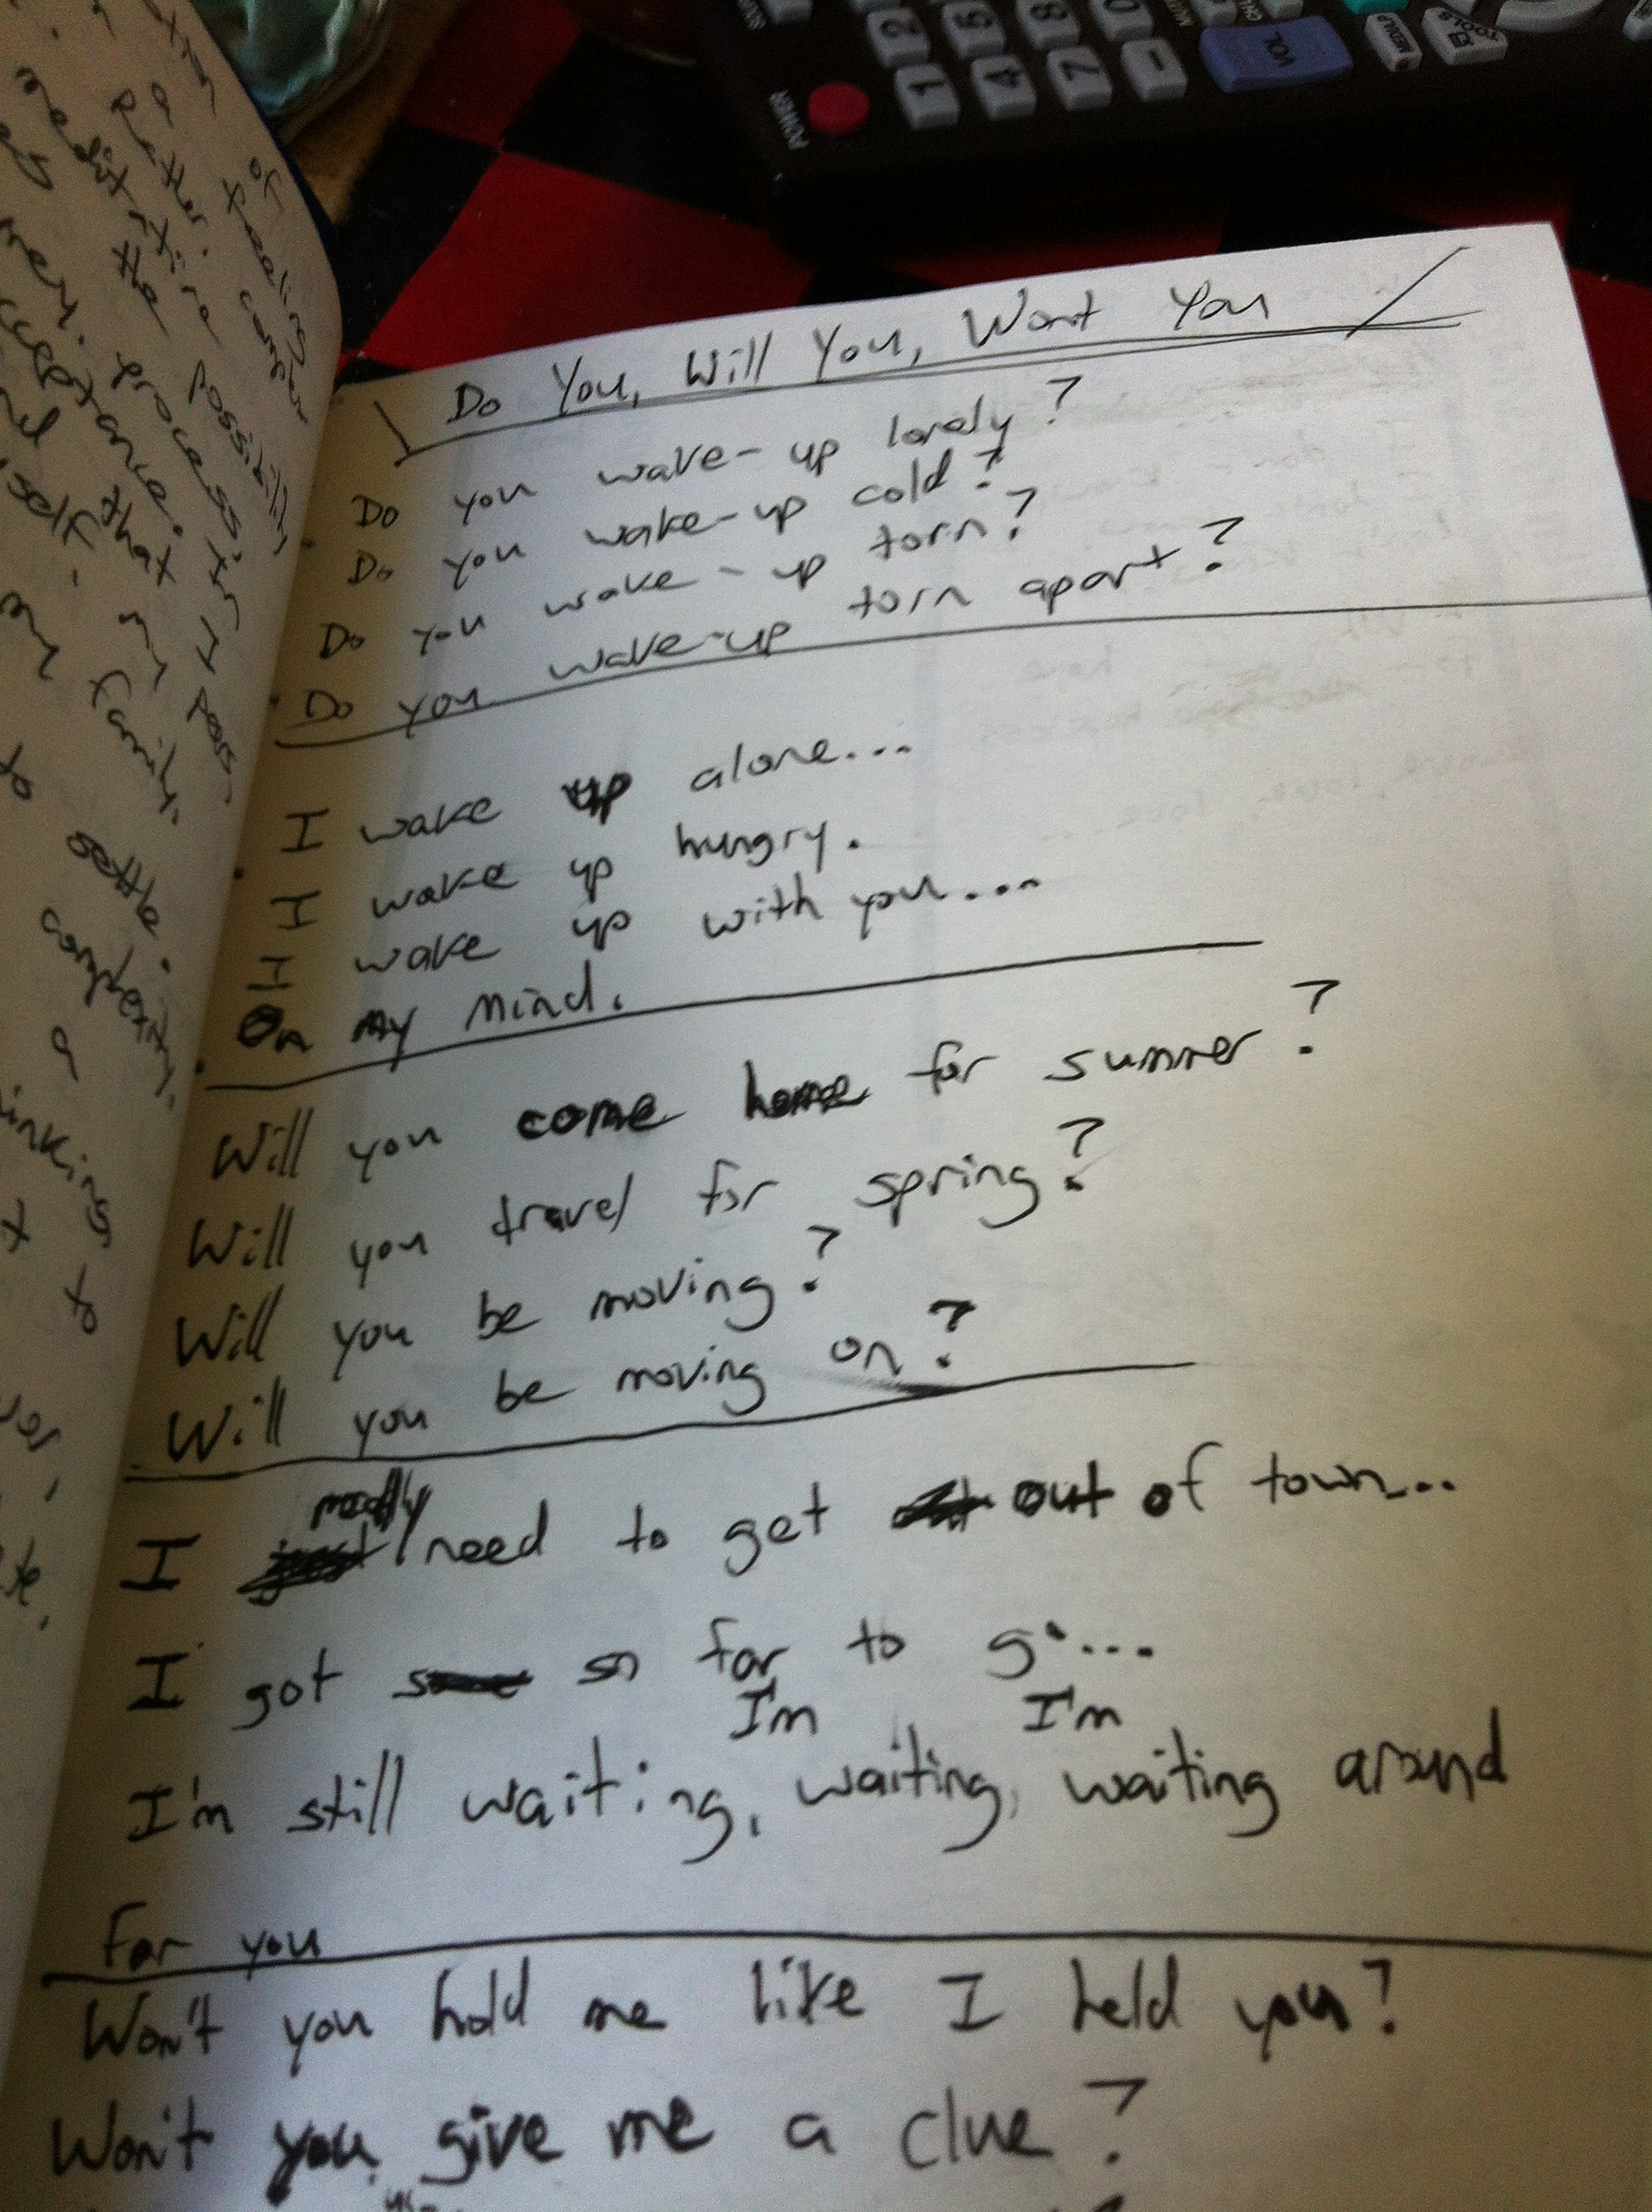 of
a feeling
rather. cancer
negitative
the possibility
her. process in
acceptance. I
and that pass
self. my
my family.
to settle.
complexity.
a
thinking
to
POWER
1 2
4 5
7 8
- 0
VOL
MENU
TOOLS
Do You, Will You, Wont You
Do you wake-up lonely?
Do you wake-up cold?
Do you wake-up torn?
Do you wake-up torn apart?
I wake up alone...
I wake up hungry.
I wake up with you....
On my mind.
Will you come home for summer?
Will you travel for spring?
Will you be moving?
Will you be moving on?
really
I need to get out of town...
I got so far to go...
I'm I'm
I'm still waiting, waiting, waiting around
for you
Won't you hold me like I held you?
Won't you give me a clue?